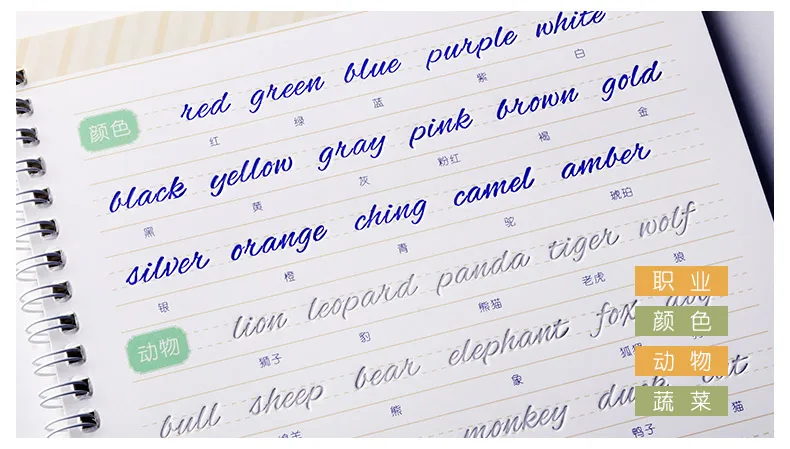 red green blue purple white
颜色
红 绿 蓝 紫 白
black yellow gray pink brown gold
黑 黄 灰 粉红 褐 金
silver orange ching camel amber
银 橙 青 驼 琥珀
lion leopard panda tiger wolf
动物
狮子 豹 熊猫 老虎 狼
bull sheep bear elephant fox
熊 象
monkey
鸭子 猫
职业
颜色
动物
蔬菜